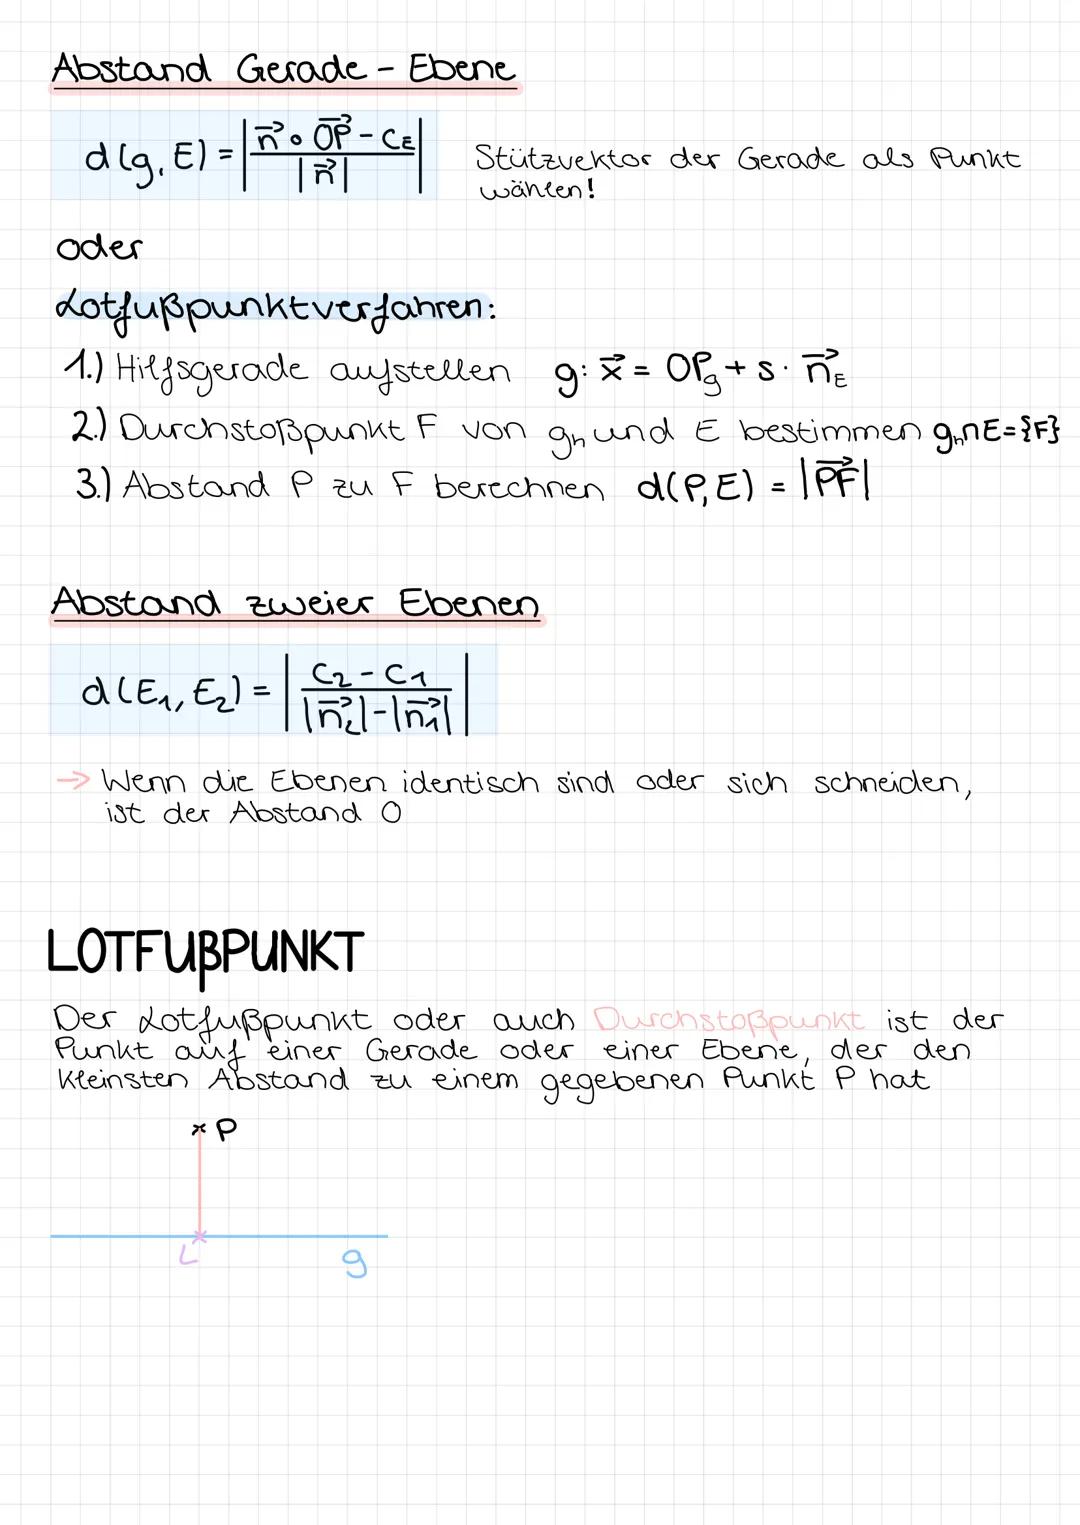 Abstand Gerade - Ebene
d(g, E) = |(n⃗ ∘ OP⃗ - c_E) / |n⃗||
Stützvektor der Gerade als Punkt
wählen!
oder
Lotfußpunktverfahren:
1.) Hilfsgerade aufstellen g: x⃗ = OP_g + s · n⃗_E
2.) Durchstoßpunkt F von g_h und E bestimmen g_h∩E={F}
3.) Abstand P zu F berechnen d(P,E) = |PF⃗|
Abstand zweier Ebenen
d(E₁, E₂) = |(c₂ - c₁) / (|n⃗₂|-|n⃗₁|)|
→ Wenn die Ebenen identisch sind oder sich schneiden,
ist der Abstand 0
LOTFUßPUNKT
Der Lotfußpunkt oder auch Durchstoßpunkt ist der
Punkt auf einer Gerade oder einer Ebene, der den
kleinsten Abstand zu einem gegebenen Punkt P hat
P
L
g